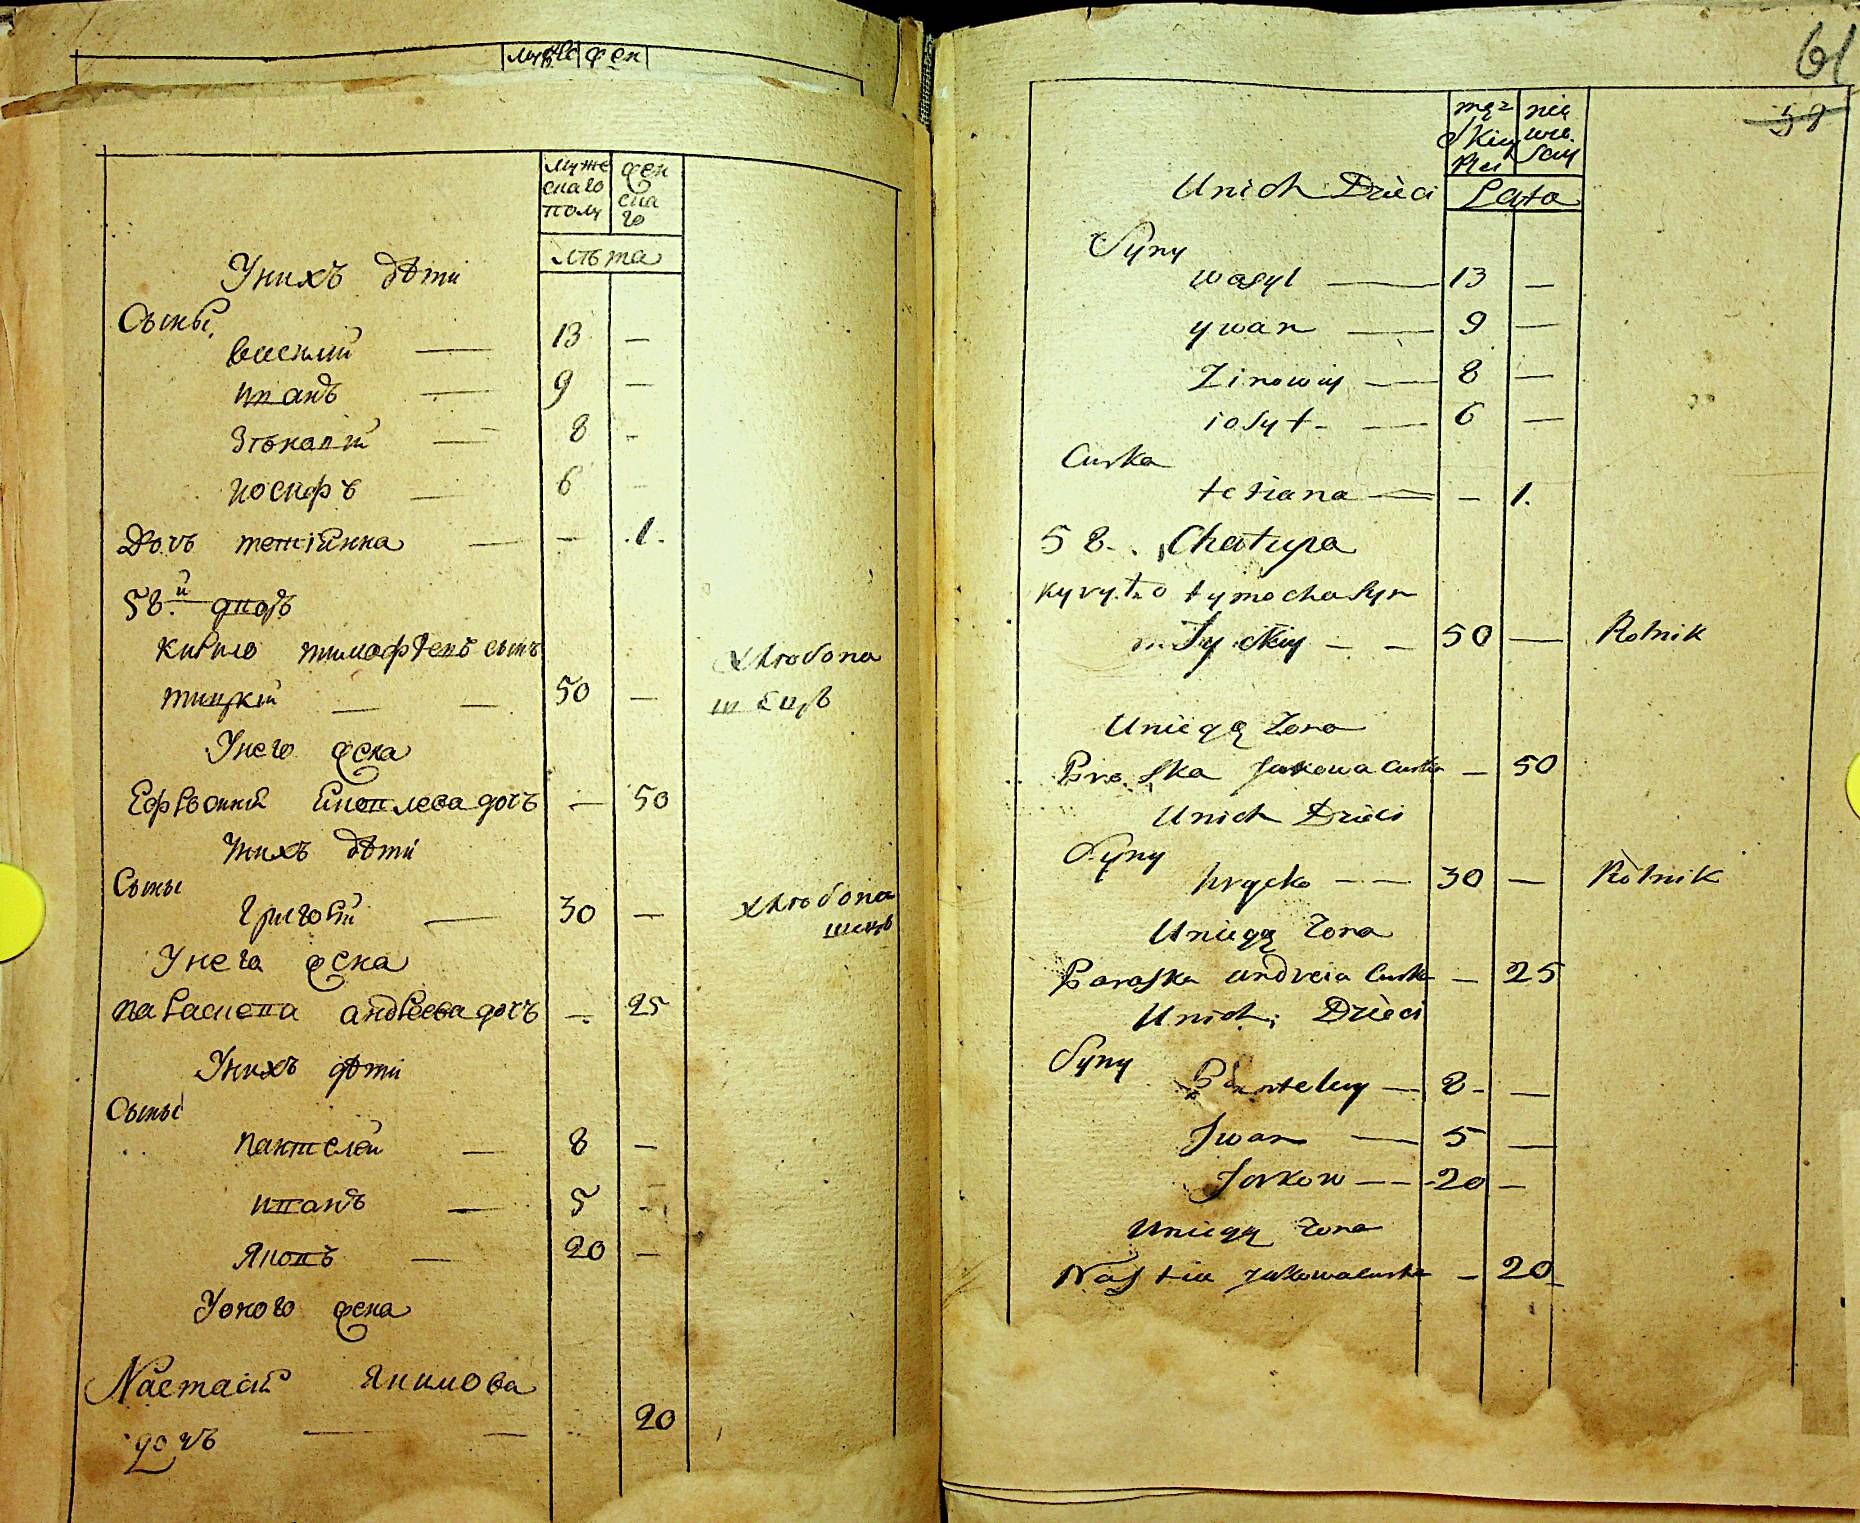 муже жен
муже жен
скаго ска
полу го
лѣта
Унихъ дѣти
Сыны
василий — 13 —
иванъ — 9 —
Зѣновий — 8 -
иосифъ — 6 -
Дочъ тетiянна — — .1.
58.й дворъ
кирило тимофѣевъ сынъ
тицкий — — 50 — хлѣбопа
шецъ
Унего жена
Ефросиния яковлева дочъ — 50
Унихъ дѣти
Сыны
григорий — 30 — хлѣбопа
шецъ
Унего жена
параскева андрѣева дочъ — 25
Унихъ дѣти
Сыны
пантелей — 8 —
иванъ — 5 -
Яковъ — 20 —
Уоного жена
Настасия якимова
дочъ — — 20
61
58
męz nie
skiey wie
Plci sciey
Unich Dzieci Lata
Syny
wasyl — 13 —
ywan — 9 —
Zinowiy — 8 —
iosyf — 6 —
Curka
tetiana — — 1.
58. Chatupa
kyryło tymocha Syn
tyckiy — — 50 — Rolnik
Uniegą Zona
Jakowa Curka — 50
Unich Dzieci
Syny
hrycko — — 30 — Rolnik
Uniegą Zona
Paraska andreia Curka — 25
Unich Dzieci
Syny
Panteley — 8 - —
Jwan — 5 —
Jarkow — — 20 —
Uniegą Zona
Nastia jakowa curka — 20